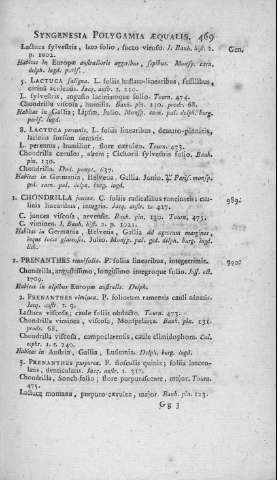 SYNGENESIA POLYGAMIA ÆQUALIS. 469
Lactuca sylvestris, lato folio, succo viroso. J. Bauh. hist. 2. Gen.
p. 1002.
Habitat in Europæ australioris aggeribus, sepibus. Monsp. cam.
delph. lugd. paris.
5. LACTUCA saligna. L. foliis hastato-linearibus, sessilibus,
carina aculeata. Jacq. austr. t. 250.
L. sylvestris, angusto laciniatoque folio. Tourn. 474.
Chondrilla viscosa, humilis. Bauh. pin. 130. prodr. 68.
Habitat in Gallia; Lipsiæ. Julio. Monsp. cam. pal. delph. burg.
paris. lugd.
8. LACTUCA perennis. L. foliis linearibus, dentato-pinnatis,
laciniis sursum dentatis.
L. perennis, humilior, flore cæruleo. Tourn. 473.
Chondrilla cærulea, altera; Cichorii sylvestris folio. Bauh.
pin. 130.
Chondrilla. Dod. pempt. 637.
Habitat in Germania, Helvetia, Gallia. Junio. ♃ Paris. monsp.
got. cam. pal. delph. burg. lugd.
1. CHONDRILLA juncea. C. foliis radicalibus runcinatis; caulinis 989.
linearibus, integris. Jacq. austr. t. 427.
C. juncea viscosa, arvensis. Bauh. pin. 130. Tourn. 475.
C. viminea. J. Bauh. hist. 2. p. 1021.
Habitat in Germania, Helvetia, Gallia ad agrorum margines,
inque locis glareosis. Julio. Monsp. pal. got. delph. burg. lugd.
1. PRENANTHES tenuifolia. P. foliis linearibus, integerrimis. 990.
Chondrilla, angustissimo, longissimo integroque folio.
1709.
Habitat in alpibus Europæ australis. Delph.
2. PRENANTHES viminea. P. foliorum ramentis cauli adnatis.
Jacq. austr. t. 9.
Lactuca viscosa; caule foliis obducto. Tourn. 473.
Chondrilla viminea, viscosa, Monspeliaca. Bauh. pin. 131.
prodr. 68.
Chondrilla viscosa, campoclarensis, caule elimidophoro. Col.
ecphr. 1. t. 240.
Habitat in Austria, Gallia, Lusitania. Delph. burg. lugd.
3. PRENANTHES purpurea. P. flosculis quinis; foliis lanceolatis,
denticulatis. Jacq. austr. t. 317.
Chondrilla, Sonchi folio; flore purpurascente, major. Tourn.
475.
Lactuca montana, purpuro-cærulea, major. Bauh. pin. 123.
Gg 3